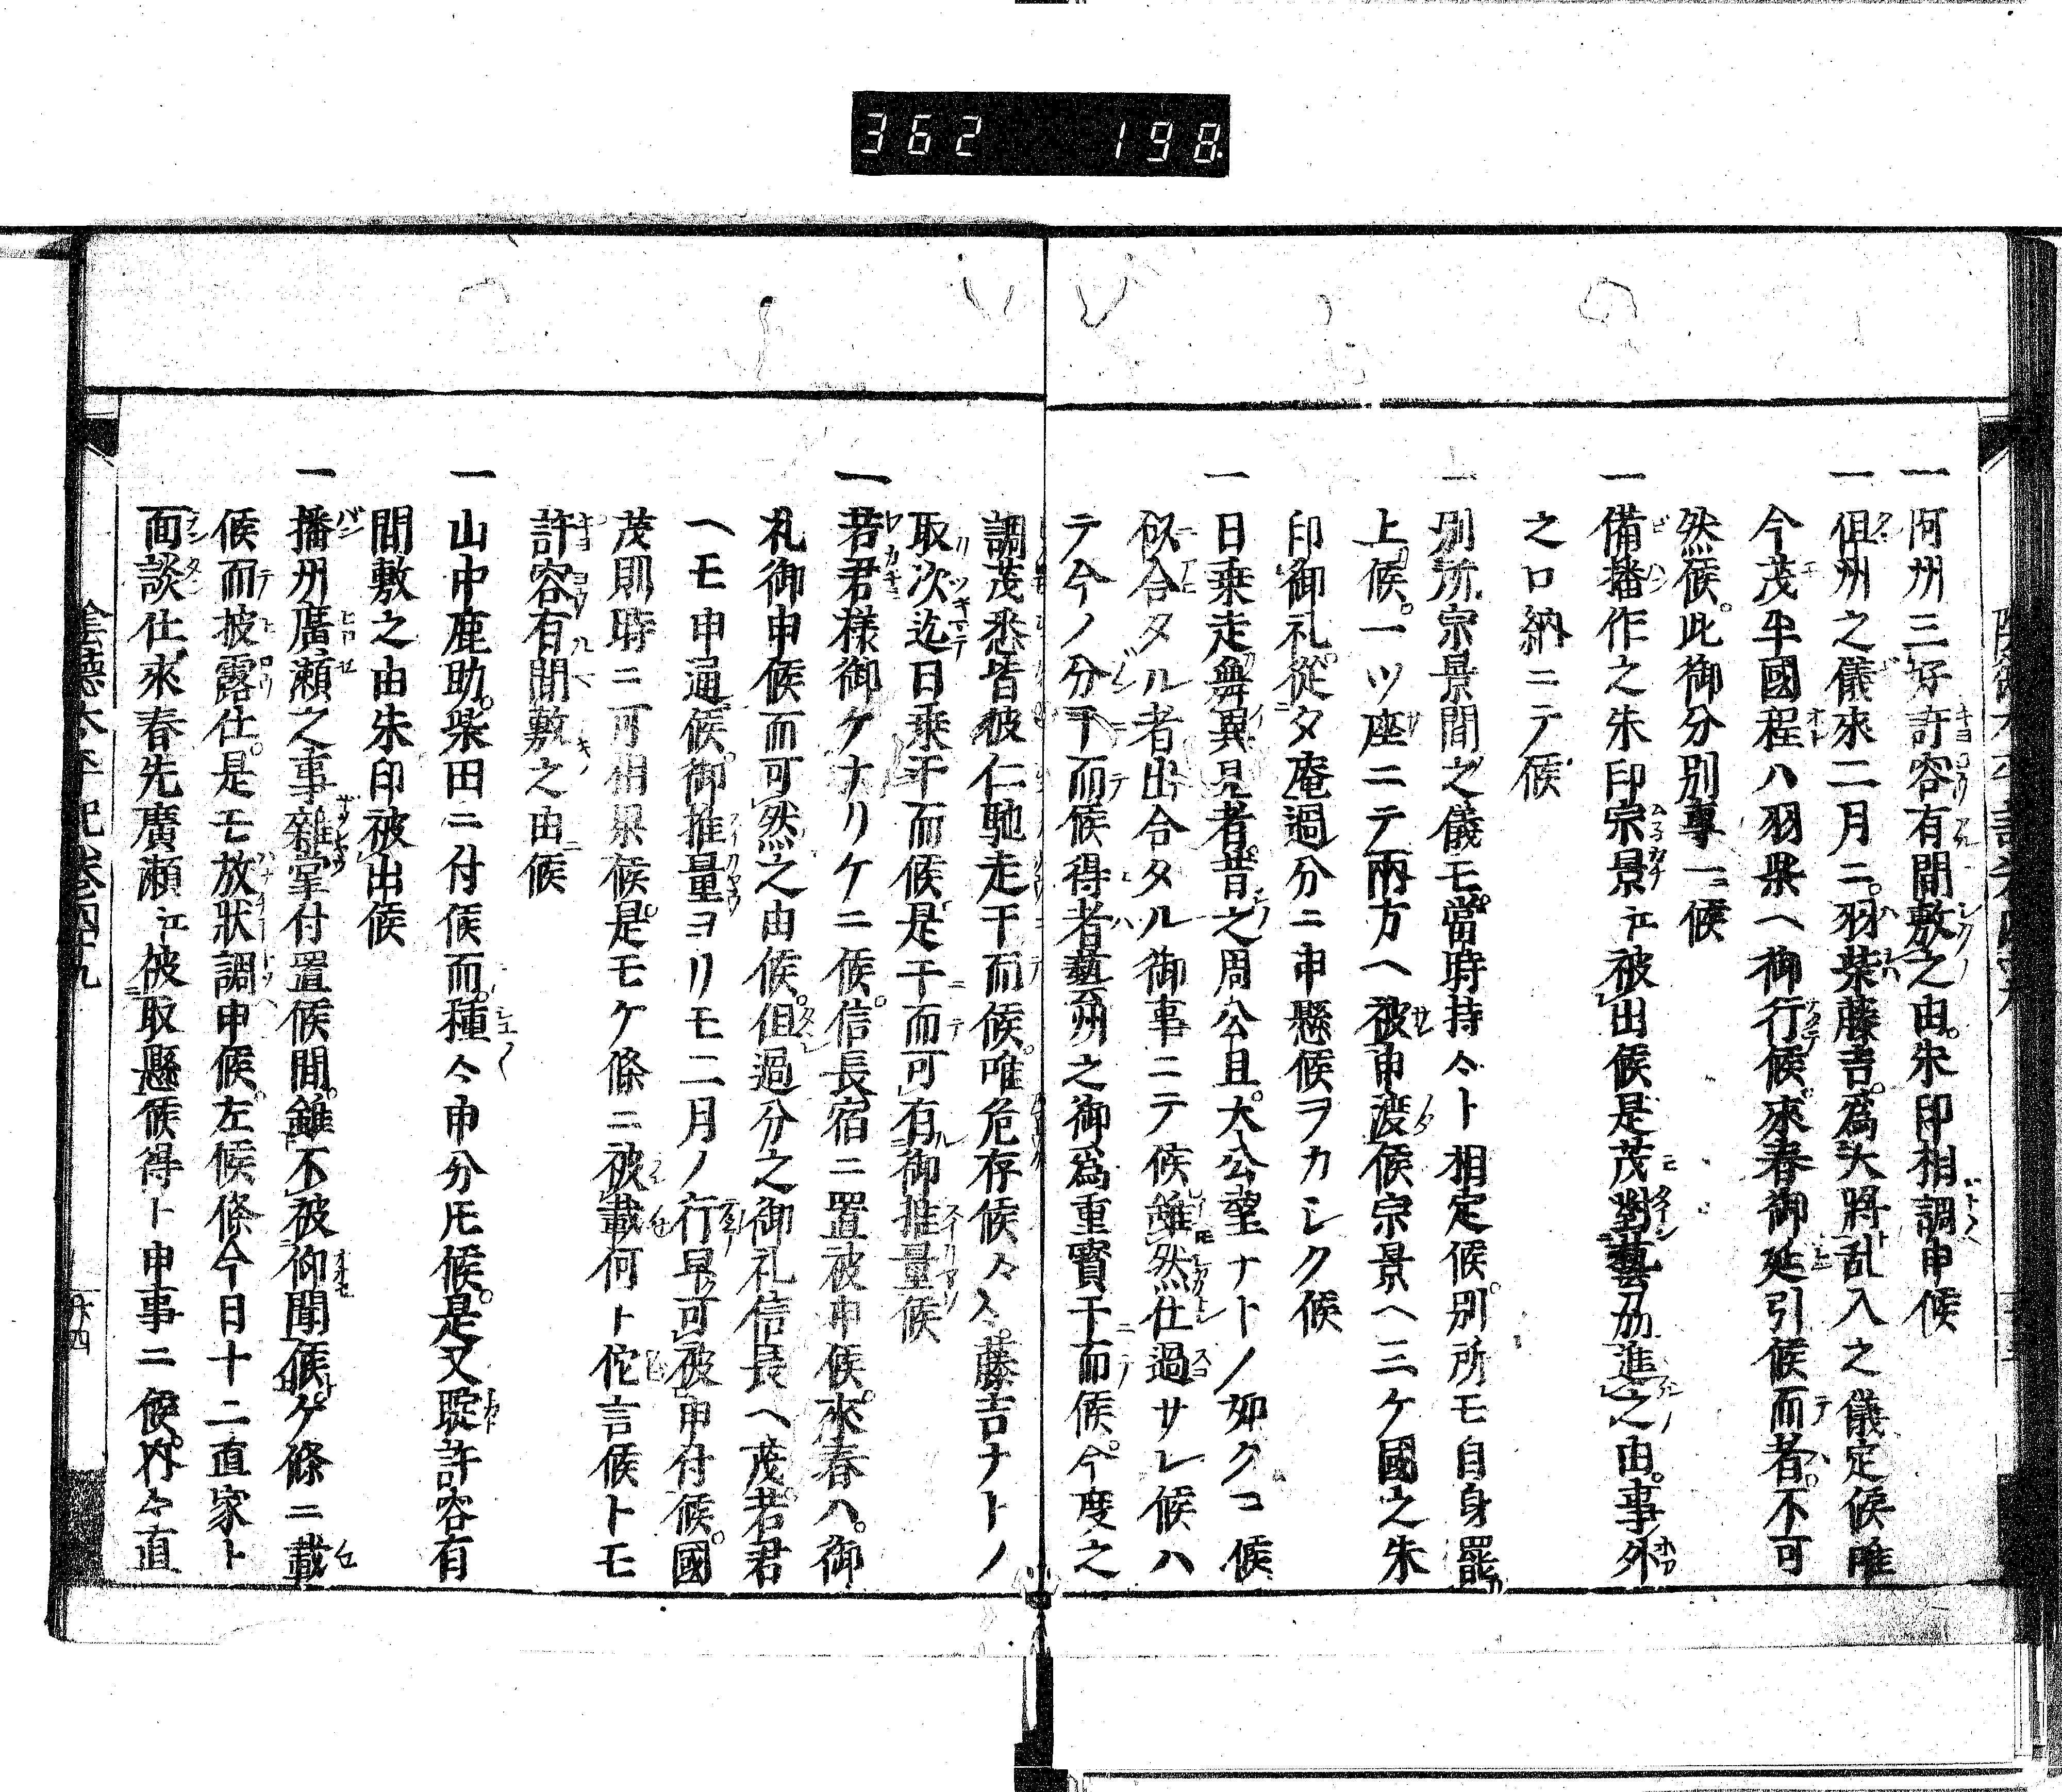 362 198
一阿州三好許容有間敷之由。朱印相調申候
一但州之儀來二月ニ。羽柴藤吉。爲大將乱入之儀定候唯
今茂半國程ハ羽柴へ御行候。來春御延引候而者。不可
然候。此御分別專一候
一備播作之朱印宗景江被出候是茂對藝州進之由。事外
之口納ニテ候
一別所宗景間之儀モ。當時持々ト相定候。別所モ自身罷
上候。一ツ座ニテ兩方へ被申渡候宗景へ三ケ國之朱
印御礼從タ庵過分ニ申懸候ヲカシク候
一日乗走舞異見者昔之周公旦。大公望ナトノ如クコ候
似合タル者出合タル御事ニテ候雖然仕過サレ候ハ
テ今ノ分干而候得者藝州之御爲重寳干而候。今度之
調茂悉皆彼仁馳走干而候。唯危存候々々。藤吉ナトノ
取次迄日乗干而候是干而可有御推量候
一若君様御ケナリケニ候。信長宿ニ置被申候。來春ハ。御
礼御申候而可然之由候。但過分之御礼信長へ茂。若君
ヘモ申通候。御推量ヨリモ二月ノ行早可被申付候。國
茂則時ニ可相果候。是モケ條ニ被載何ト侘言候トモ
許容有間敷之由候
一山中鹿助。柴田ニ付候而。種々申分氏候。是又聢許容有
間敷之由朱印被出候
一播州廣瀬之事雜掌付置候間。雖不被仰聞候ケ條ニ載
候而披露仕。是モ放狀調申候。左候條今日十二直家ト
面談仕。來春先廣瀬江被取懸候得ト申事ニ候。内々直
陰德太平記卷四十九